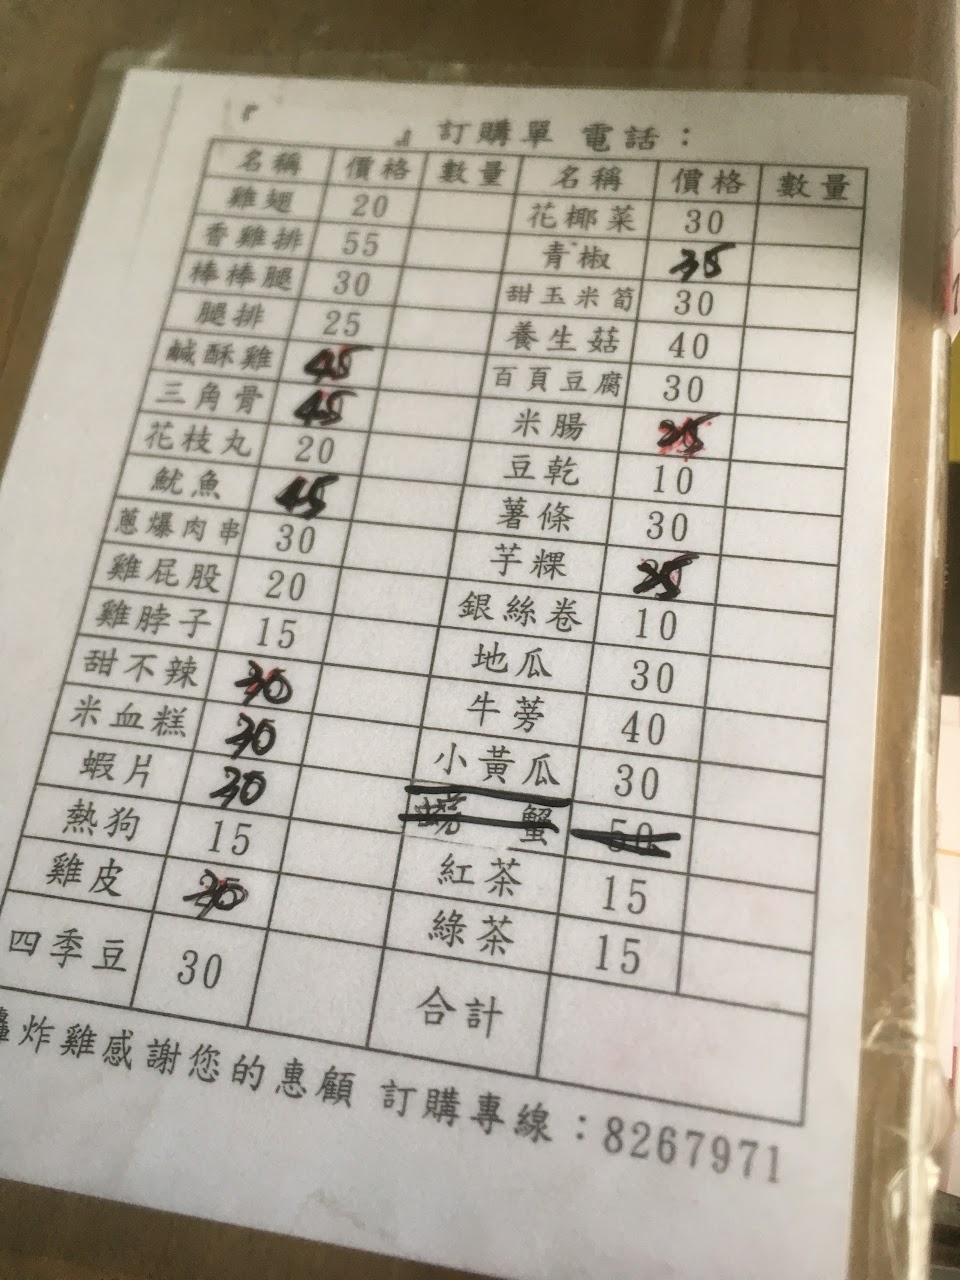 『 』訂購單 電話：
名稱 價格 數量 名稱 價格 數量
雞翅 20 花椰菜 30
香雞排 55 青椒 35
棒棒腿 30 甜玉米筍 30
腿排 25 養生菇 40
鹹酥雞 45 百頁豆腐 30
三角骨 45 米腸 25
花枝丸 20 豆乾 10
魷魚 45 薯條 30
蔥爆肉串 30 芋粿 25
雞屁股 20 銀絲卷 10
雞脖子 15 地瓜 30
甜不辣 30 牛蒡 40
米血糕 30 小黃瓜 30
蝦片 30 蟹 50
熱狗 15 紅茶 15
雞皮 30 綠茶 15
四季豆 30 合計
炸雞感謝您的惠顧 訂購專線：8267971